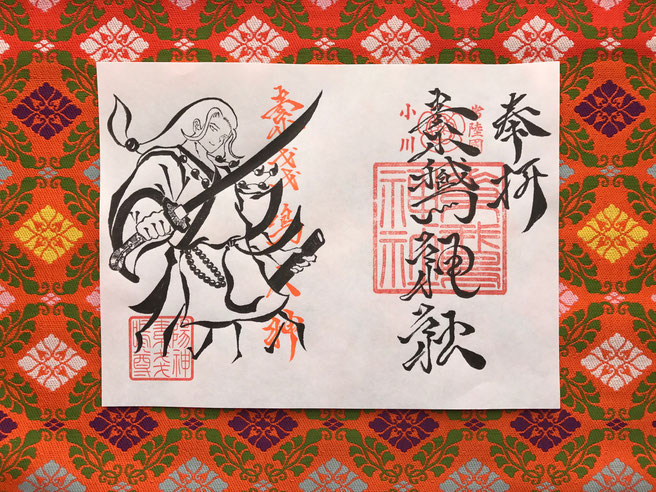 奉拝
常陸国
小川
素鵞神社
素鵞
神社
素戔嗚大神